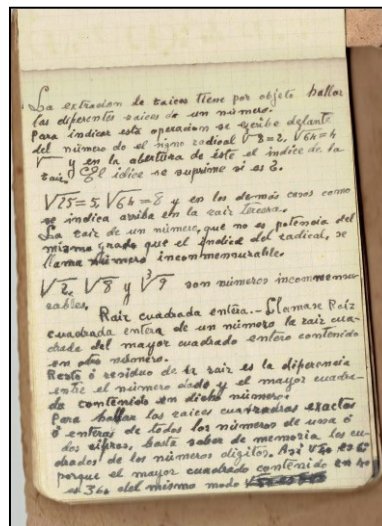 La extracion de raices tiene por objeto hallar
las diferentes raices de un número.
Para indicar esta operacion se escribe delante
del número de el signo radical √8=2, √64=4
√ y en la abertura de éste el indice de la
raiz. El idice se suprime si es 2.
√25=5, √64=8 y en los demás casos como
se indica arriba en la raiz tercera.
La raiz de un número, que no es potencia del
mismo grado que el indice del radical, se
llama número incommensurable.
√2, √8 y ³√9 son números incommensu-
rables.
Raiz cuadrada entera.-Llamase Raiz
cuadrada entera de un número la raiz cua-
drada del mayor cuadrado entero contenido
en otro número.
Resto ó residuo de la raiz es la diferencia
entre el número dado y el mayor cuadra-
do contenido en dicho número.
Para hallar las raices cuadradas exactas
ó enteras de todos los números de una ó
dos cifras, basta saber de memoria los cu-
drados de los números digitos. Asi √40 es 6
porque el mayor cuadrado contenido en 40
es 36 del mismo modo